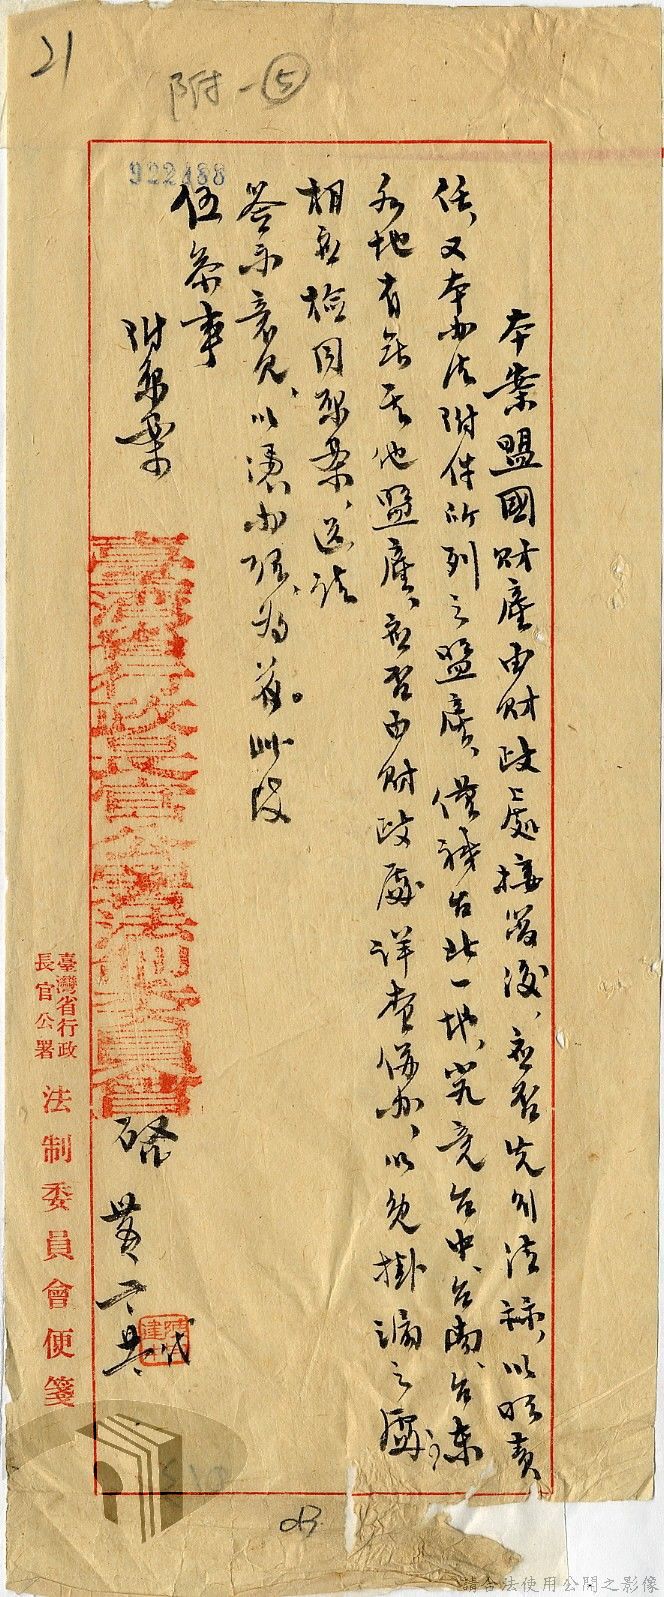 21
附一⑤
922488
本案盟國財產由財政處接管後、應否先行清理、以明責
任、又本办法附件所列之盟產、僅補台北一地、究竟台中、台南、台東
各地有無其他盟產、應否由財政處詳查併办、以免掛漏之處、
相應檢同原案、送請
簽示意見、以憑办理為荷。此致
伍參事
附原案
臺灣省行政長官公署法制委員會
啓
黃
代
臺灣省行政
長官公署
法制委員會便箋
請合法使用公開之影像